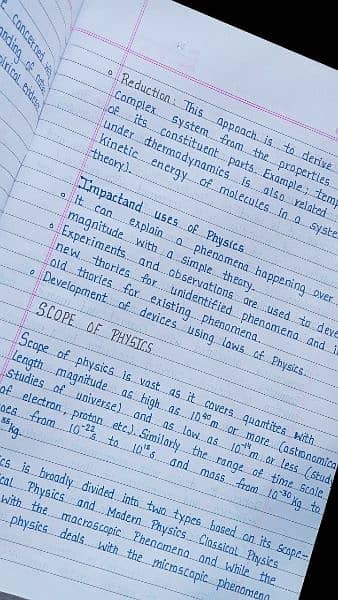 e concerned with
nding of nat
pirical eviden
Reduction: This appoach is to derive
complex system from the properties
of its constituent parts. Example:, temp
under dthermodynamics is also related
kinetic energy of molecules in a syste
theory).
Impactand uses of Physics
It can explain a phenomena happening over
magnitude with a simple theory.
Experiments and observations are used to deve
new thories for unidentified phenomena and i
old thories for existing phenomena.
Development of devices using laws of Physics.
SCOPE OF PHYSICS
Scope of physics is vast as it covers quantites with
length magnitude as high as 10⁴⁰ m or more (astronomica
studies of universe) and as low as 10⁻¹⁴ m or less (study
of electron, proton etc). Similorly the range of time scale
oes from 10⁻²² s to 10¹⁸ s and mass from 10⁻³⁰ kg to
⁵⁵ kg.
ics is broadly divided into two types based on its scope-
cal Physics and Modern Physics. Classical Physics
with the macroscopic Phenomena and while the
physics deals with the microscopic phenomena